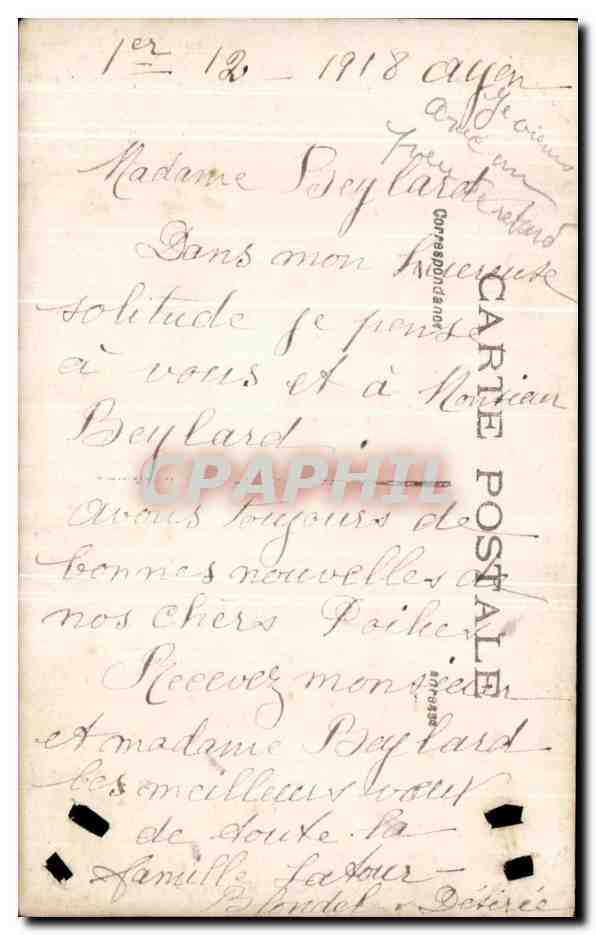 1er 12 - 1918 ayen
je viens
avec un
peu de retard
Madame Beylard
Dans mon huereuse
solitude je pense
à vous et à Monsieur
Beylard
avons toujours de
bonnes nouvelles de
nos chers Poilus
Recevez monsieur
et madame Beylard
les meilleurs vœux
de toute la
famille Latour -
Blondel Désirée
Correspondance
CARTE POSTALE
Adresse
CPAPHIL